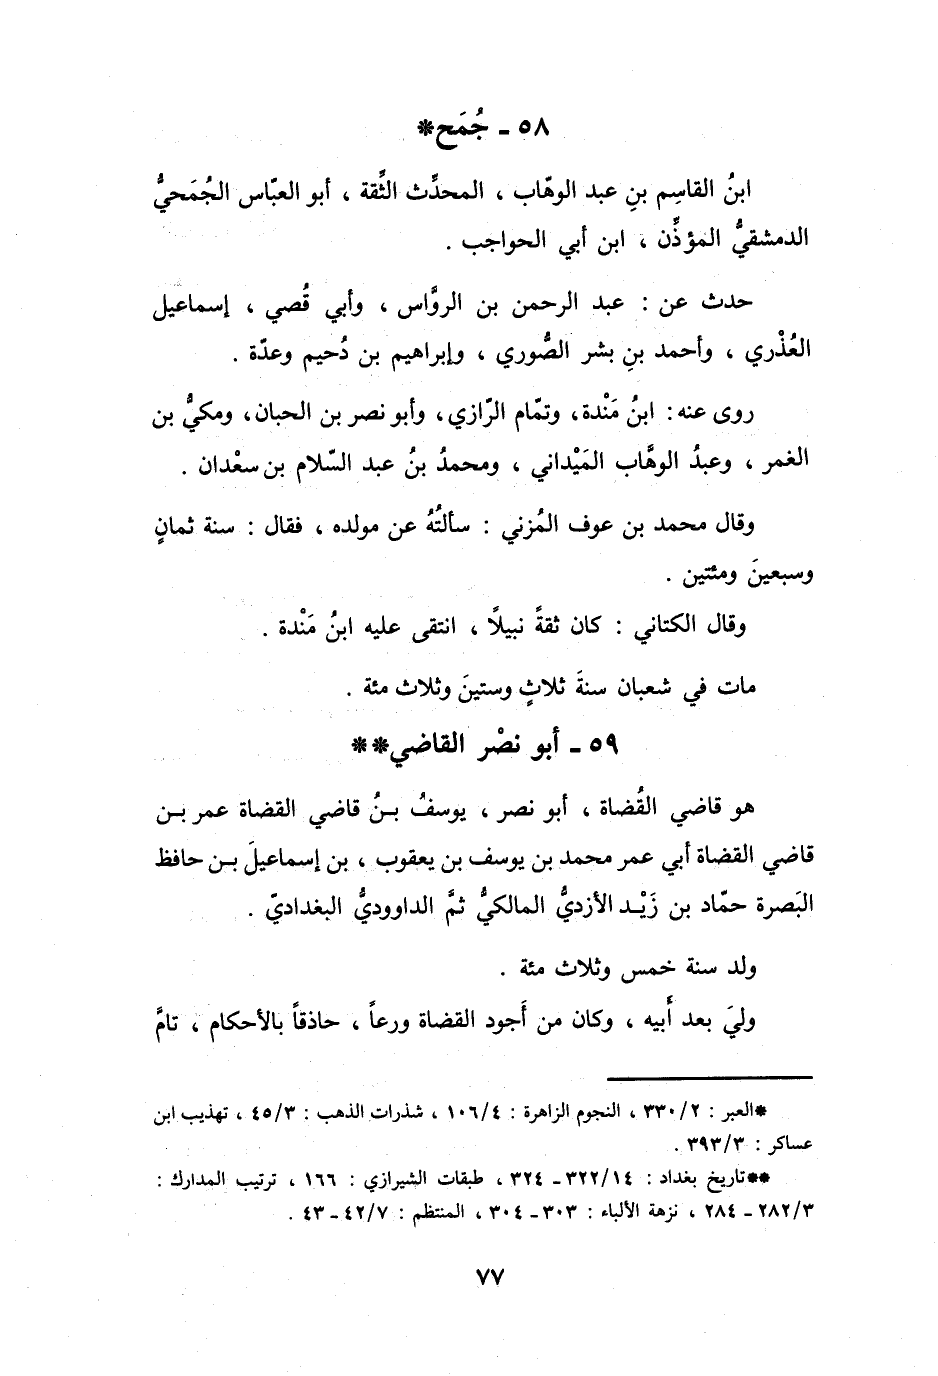 ٥٨ - جُمَح*
ابنُ القاسِم بنِ عبد الوهّاب ، المحدِّث الثِّقة ، أبو العبّاس الجُمَحيُّ
الدمشقيُّ المؤذِّن ، ابن أبي الحواجب .
حدث عن : عبد الرحمن بن الروَّاس ، وأبي قُصي ، إسماعيل
العُذْري ، وأحمد بنِ بشر الصُّوري ، وإبراهيم بن دُحيم وعدّة .
روى عنه : ابنُ مَنْدة، وتمّام الرّازي، وأبو نصر بن الحبان، ومكيُّ بن
الغمر ، وعبدُ الوهَّاب المَيْداني ، ومحمدُ بنُ عبد السّلام بن سعْدان .
وقال محمد بن عوف المُزني : سألتُهُ عن مولده ، فقال : سنة ثمانٍ
وسبعينَ ومئتين .
وقال الكتاني : كان ثقةً نبيلًا ، انتقى عليه ابنُ مَنْدة .
مات في شعبان سنةَ ثلاثٍ وستينَ وثلاث مئة .
٥٩ - أبو نصْر القاضي**
هو قاضي القُضاة ، أبو نصر ، يوسفُ بـنُ قاضي القضاة عمر بـن
قاضي القضاة أبي عمر محمد بن يوسف بن يعقوب ، بن إسماعيلَ بـن حافظ
البَصرة حمّاد بن زَيْـد الأزديُّ المالكيُّ ثمَّ الداووديُّ البغداديّ .
ولد سنة خمس وثلاث مئة .
وليَ بعد أبيه ، وكان من أَجود القضاة ورعاً ، حاذقاً بالأحكام ، تامَّ
*العبر : ٣٣٠/٢ ، النجوم الزاهرة : ١٠٦/٤ ، شذرات الذهب : ٤٥/٣ ، تهذيب ابن
عساكر : ٣٩٣/٣ .
**تاريخ بغداد : ٣٢٢/١٤ - ٣٢٤ ، طبقات الشيرازي : ١٦٦ ، ترتيب المدارك :
٢٨٢/٣ - ٢٨٤ ، نزهة الألباء : ٣٠٣ - ٣٠٤ ، المنتظم : ٤٢/٧ - ٤٣ .
٧٧